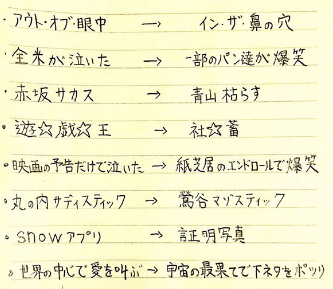 ・アウト・オブ・眼中 → イン・ザ・鼻の穴
・全米が泣いた → 一部のパン達が爆笑
・赤坂サカス → 青山枯らす
・遊☆戯☆王 → 社☆畜
・映画の予告だけで泣いた → 紙芝居のエンドロールで爆笑
・丸の内サディスティック → 鶯谷マゾスティック
・snowアプリ → 証明写真
・世界の中心で愛を叫ぶ → 宇宙の最果てで下ネタをポツリ